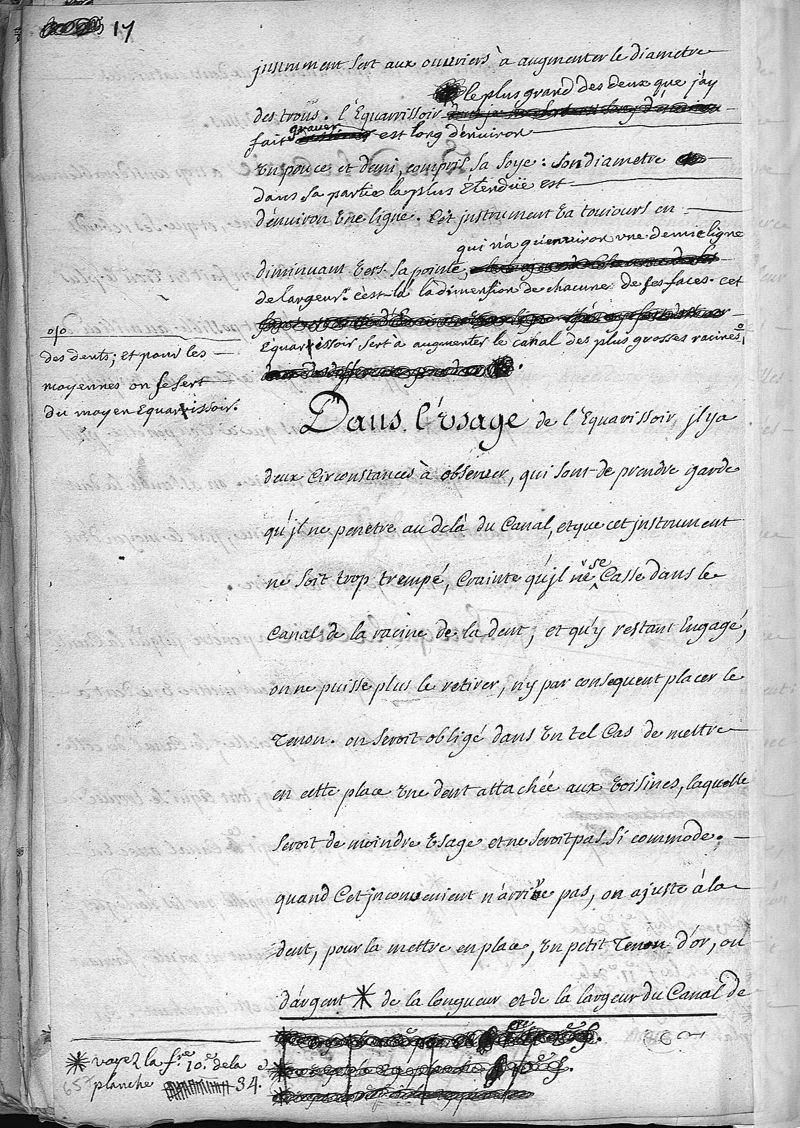 17
jnstrument sert aux ouvriers à augmenter le diametre
le plus grand des deux que j'ay
des trous. l'Equarrissoir
graver
fait est long d'environ
un pouce et demi, compris sa soye: son diametre
dans sa partie la plus Etendüe est
d'environ une ligne. Cet jnstrument va toujours en
qui n'a qu'environ une demie ligne
diminuant vers sa pointe,
de largeur. c'est-là la dimension de chacune de ses faces. cet
Equarrissoir, sert à augmenter le canal des plus grosses racines
des dents; et pour les
moyennes on se sert
du moyen Equarrissoir.
Dans l'usage de l'Equarissoir, jl y a
deux Circonstances à observer, qui sont de prendre garde
qu'jl ne penétre au delà du Canal, et que cet jnstrument
ne soit trop trempé, Crainte qu'jl ne se Casse dans le
Canal de la racine de la dent, et qu'y restant Engagé,
on ne puisse plus le retirer, n'y par consequent placer le
Tenon. on seroit obligé dans un tel Cas de mettre
en cette place une dent attachée aux voisines, laquelle
seroit de moindre usage et ne seroit pas si commode.
quand Cet jnconvenient n'arrive pas, on ajuste à la
dent, pour la mettre en place, un petit Tenon d'or, ou
d'argent * de la longueur et de la largeur du Canal de
* voyez la f.re 10.e de la
planche 34.